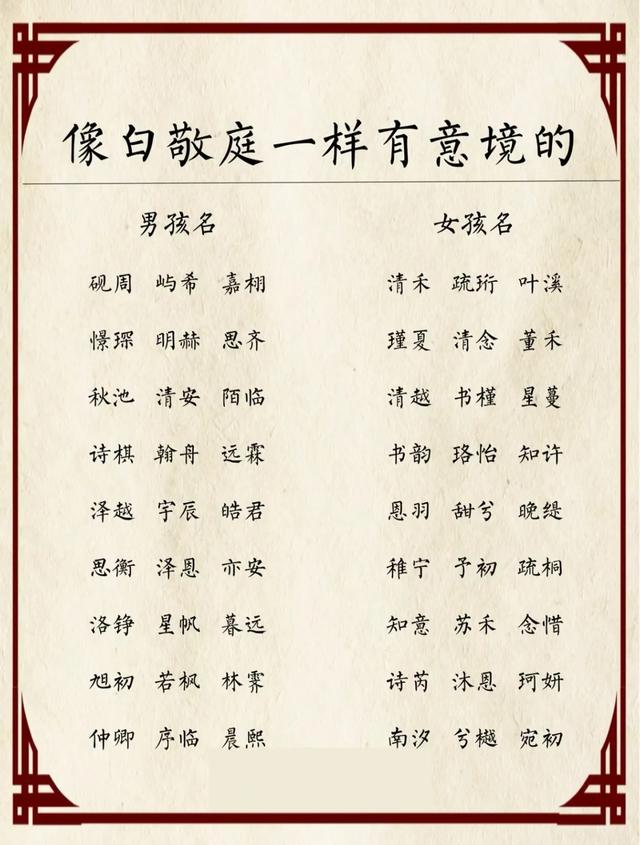 像白敬庭一样有意境的
男孩名 女孩名
砚周 屿希 嘉栩 清禾 疏珩 叶溪
憬琛 明赫 思齐 瑾夏 清念 董禾
秋池 清安 陌临 清越 书槿 星蔓
诗棋 翰舟 远霖 书韵 珞怡 知许
泽越 宇辰 皓君 恩羽 甜兮 晚缇
思衡 泽恩 亦安 稚宁 予初 疏桐
洛铮 星帆 暮远 知意 苏禾 念惜
旭初 若枫 林霁 诗芮 沐恩 珂妍
仲卿 序临 晨熙 南汐 兮樾 宛初